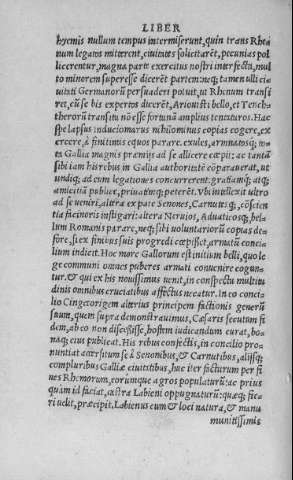 LIBER
hyemis nullum tempus intermiserunt, quin trans Rhe
num legatos mitterent, ciuitates solicitarẽt, pecunias pol
licerentur, magna parte exercitus nostri interfecta, mul
to minorem superesse dicerẽt partem: neq; tamen ulli ciui
tati Germanorũ persuaderi potuit, ut Rhenum transi
ret, cũ se bis expertos dicerẽt, Ariouisti bello, et Tench
therorũ transitu nõ esse fortunã amplius tentaturos. Hac
spe lapsus Induciomarus nihilominus copias cogere, ex
ercere, à finitimis equos parare, exules, damnatosq; to
ta Gallia magnis præmijs ad se allicere cœpit: ac tantã
sibi iam his rebus in Gallia authoritatẽ cõparauerat, ut
undiq; ad eum legationes concurrerent: gratiamq; atq;
amicitiã publice, priuatimq; peterẽt. Vbi intellexit ultro
ad se ueniri, altera ex parte Senones, Carnutesq; cõscien
tia facinoris instigari: altera Neruios, Aduaticosq; bel
lum Romanis parare, neq; sibi uoluntariorũ copias de
fore, si ex finibus suis progredi cœpisset, armatũ conci
lium indicit. Hoc more Gallorum est initium belli, quo le
ge communi omnes puberes armati conuenire cogun=
tur. & qui ex his nouissimus uenit, in conspectu multitu
dinis omnibus cruciatibus affectus necatur. In eo conci
lio Cingetorigem alterius principem factionis generũ
suum, quem supra demonstrauimus, Cæsaris secutum fi
dem, ab eo non discessisse, hostem iudicandum curat, bo
naq; eius publicat. His rebus confectis, in concilio pro=
nuntiat arcersitum se à Senonibus, & Carnutibus, alijsq;
compluribus Galliæ ciuitatibus, huc iter facturum per fi
nes Rhemorum, eorumque agros populaturũ: ac prius
quàm id faciat, castra Labieni oppugnaturũ: quæq; fie
ri uelit, præcipit. Labienus cum & loci natura, & manu
munitissimis